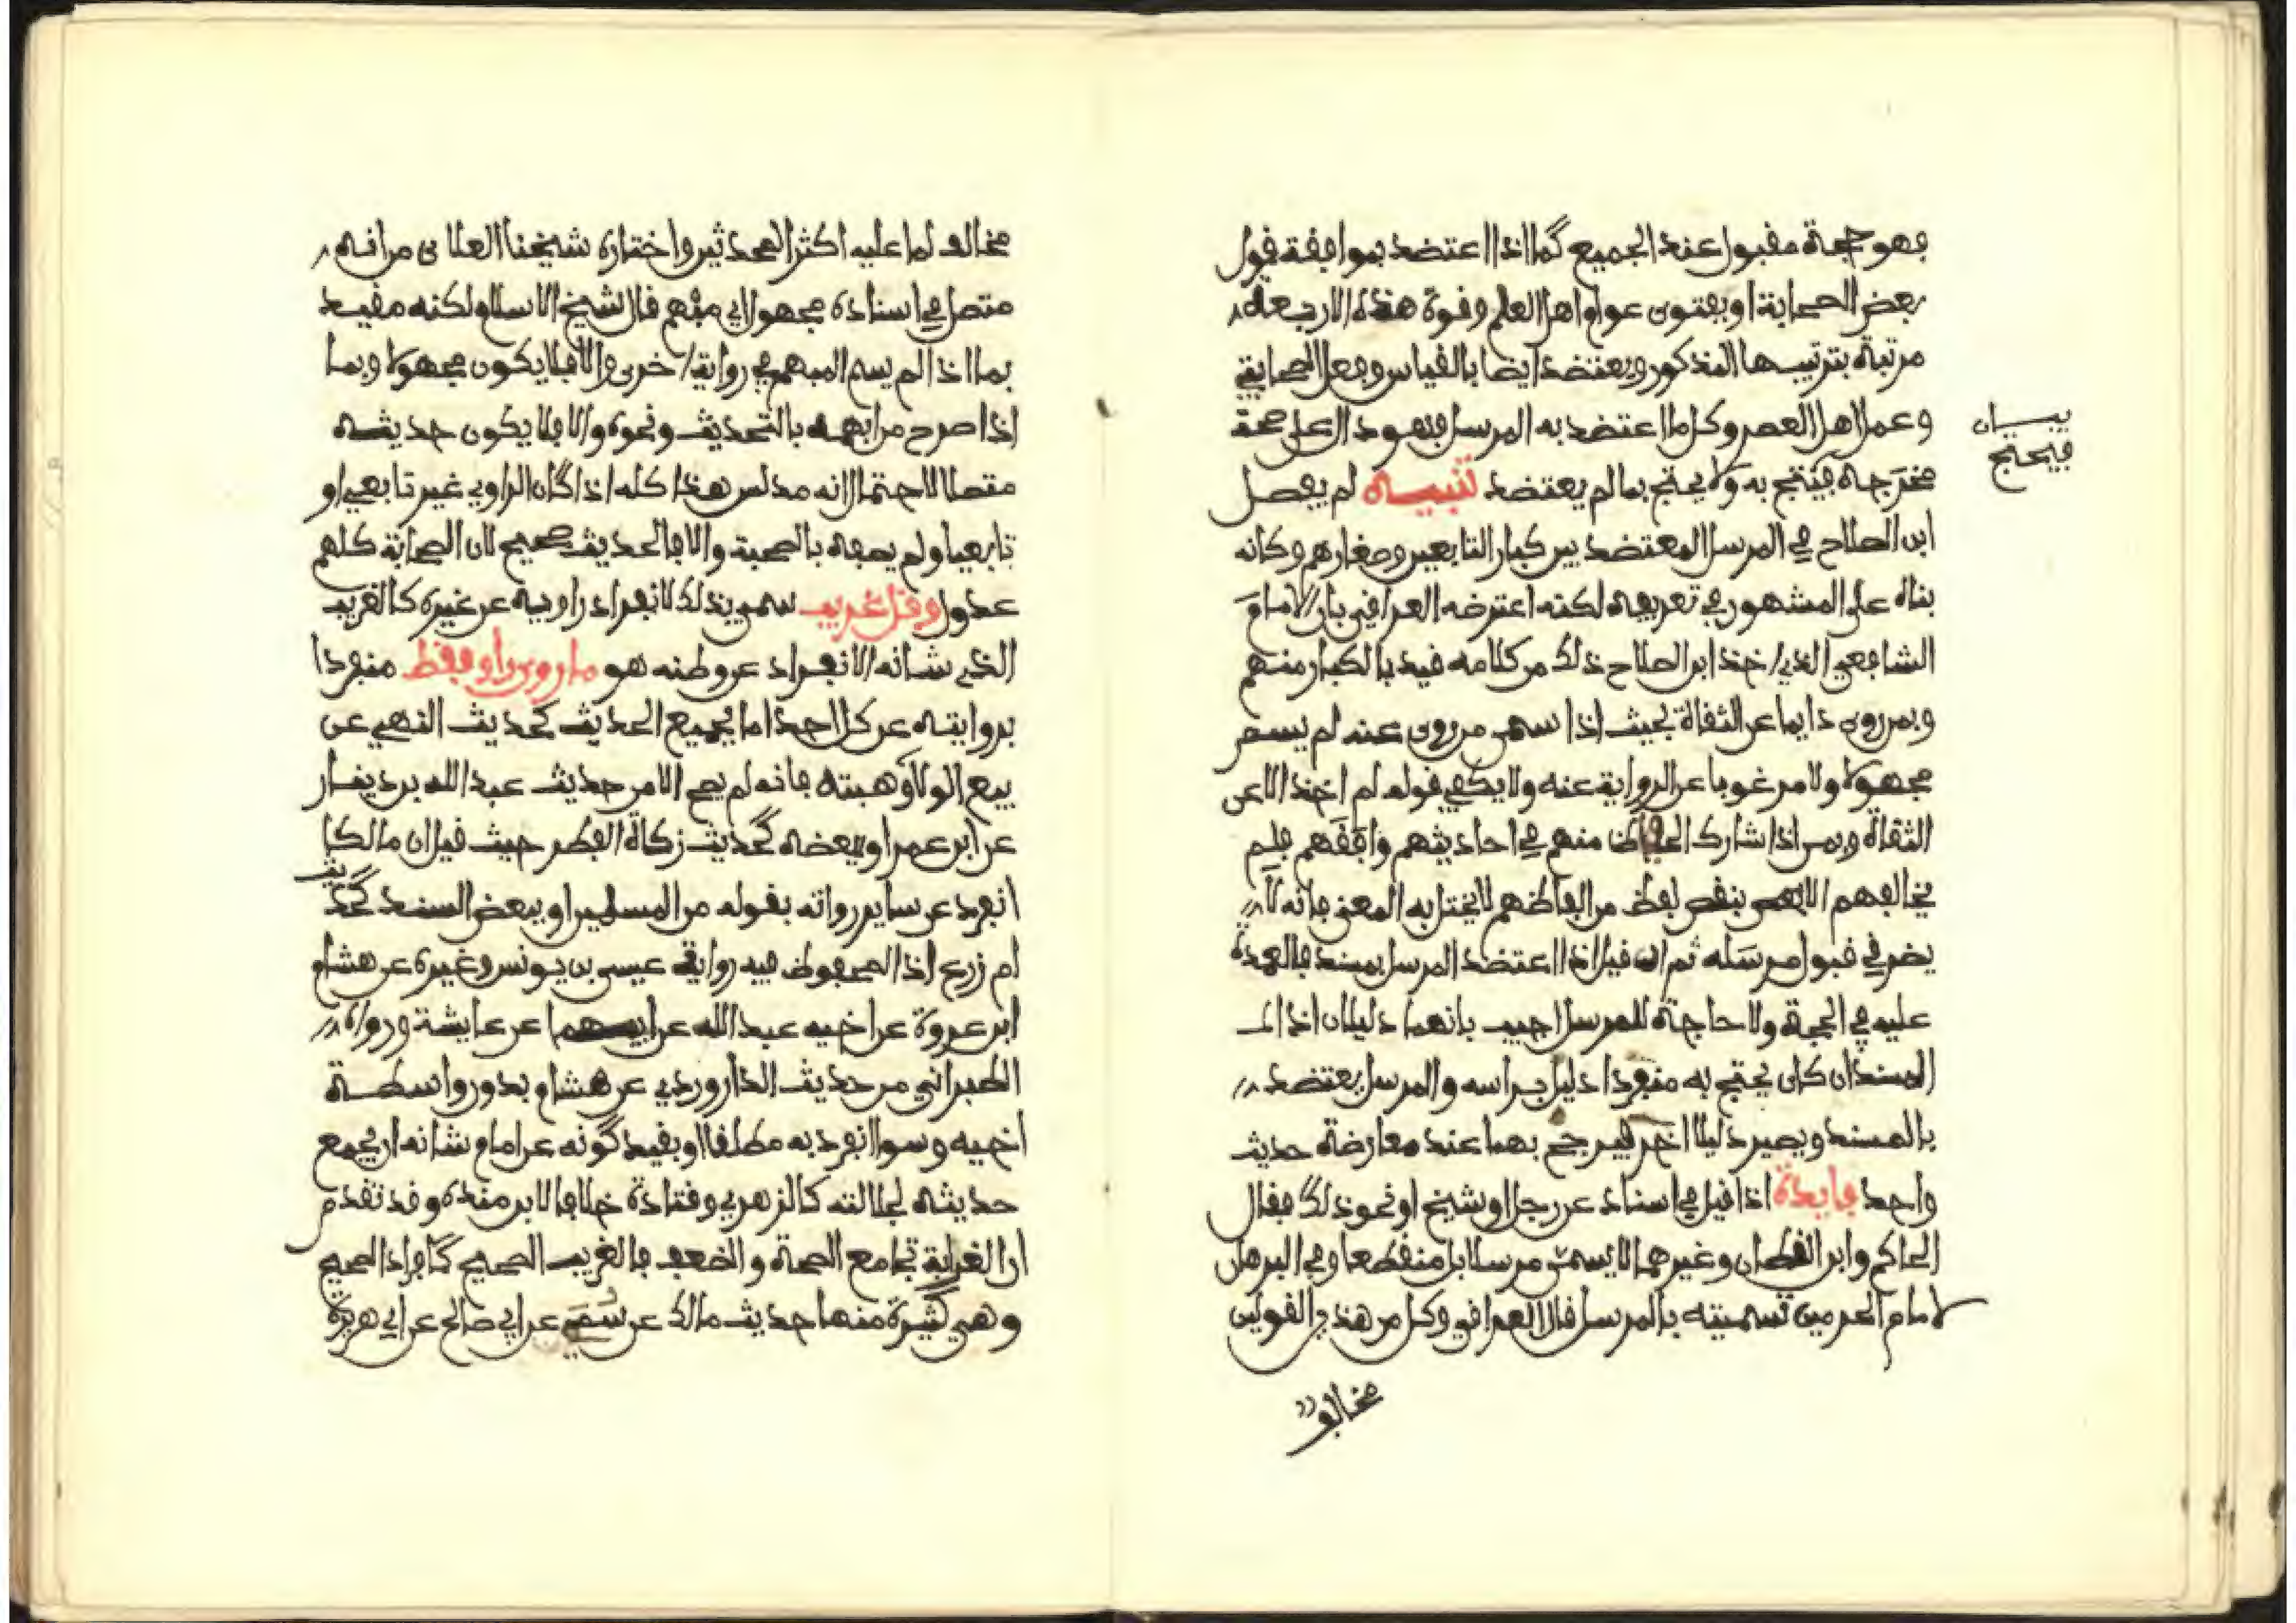 فهو حجة مقبول عند الجميع كما اذا اعتضد بموافقة قول
بعض الصحابة او بفتوى عوام اهل العلم وقوة هذه الاربعة
مرتبة بترتيبها المذكور ويعتضد ايضا بالقياس وفعل الصحابي
وعمل اهل العصر وكل ما اعتضد به المرسل فهو دال على صحة
بيان
فيحتج
مخرجه فيحتج به ولا يحتج بما لم يعتضد تنبيه لم يفصل
ابن الصلاح في المرسل المعتضد بين كبار التابعين وصغارهم وكانه
بناه على المشهور في تعريفه لكنه اعترضه العراقي بان الامام
الشافعي الذي اخذ ابن الصلاح ذلك من كلامه قيد بالكبار منهم
وبمن روى دايما عن الثقاة بحيث اذا سمى من روى عنه لم يسم
مجهولا ولا مرغوبا عن الرواية عنه ولا يكفي قوله لم اخذ الا عن
الثقاة وبمن اذا شارك الحفاظ منهم في احاديثهم وافقهم فلم
يخالفهم الا بنقص لفظ من الفاظهم لا يختل به المعنى فانه لا
يضر في قبول مرسله ثم ان قيل اذا اعتضد المرسل بمسند فالعمدة
عليه في الحجة ولا حاجة للمرسل اجيب بانهما دليلان اذ
المسند ان كان يحتج به منفردا دليل براسه والمرسل يعتضد
بالمسند ويصير دليلا اخر فيرجح بهما عند معارضة حديث
واحد فايدة اذا قيل في اسناد عن رجل او شيخ او نحو ذلك فقال
الحاكم وابن القطان وغيرهما لا يسمى مرسلا بل منقطعا وفي البرهان
لامام الحرمين تسميته بالمرسل قال العراقي وكل من هذين القولين
مخالف
مخالف لما عليه اكثر المحدثين واختاره شيخنا العلائى من انه
متصل في اسناده مجهول اي مبهم قال شيخ الاسلام ولكنه مقيد
بما اذا لم يسم المبهم في رواية اخرى والا فلا يكون مجهولا وبما
اذا صرح من ابهمه بالتحديث ونحوه والا فلا يكون حديثه
متصلا لاحتمال انه مدلس هذا كله اذا كان الراوي غير تابعي او
تابعيا ولم يصفه بالصحبة والا فالحديث صحيح لان الصحابة كلهم
عدول وقل غريب سمي بذلك لانفراد راويه عن غيره كالغريب
الذي شانه الانفراد عن وطنه هو ما روى راو فقط منفردا
بروايته عن كل احد اما بجميع الحديث كحديث النهي عن
بيع الولا وهبته فانه لم يصح الا من حديث عبد الله بن دينار
عن ابن عمر او ببعضه كحديث زكاة الفطر حيث قيل ان مالكا
انفرد عن ساير رواته بقوله من المسلمين او ببعض السند كحديث
ام زرع اذ المحفوظ فيه رواية عيسى بن يونس وغيره عن هشام
ابن عروة عن اخيه عبد الله عن ابيهما عن عايشة ورواه
الطبراني من حديث الداروردي عن هشام بدون واسطة
اخيه وسوا انفرد به مطلقا او بقيد كونه عن امام شانه ان يجمع
حديثه لجلالته كالزهري وقتادة خلافا لابن منده وقد تقدم
ان الغرابة تجامع الصحة والضعف فالغريب الصحيح كافراد الصحيح
وهي كثيرة منها حديث مالك عن سمي عن ابي صالح عن ابي هريرة